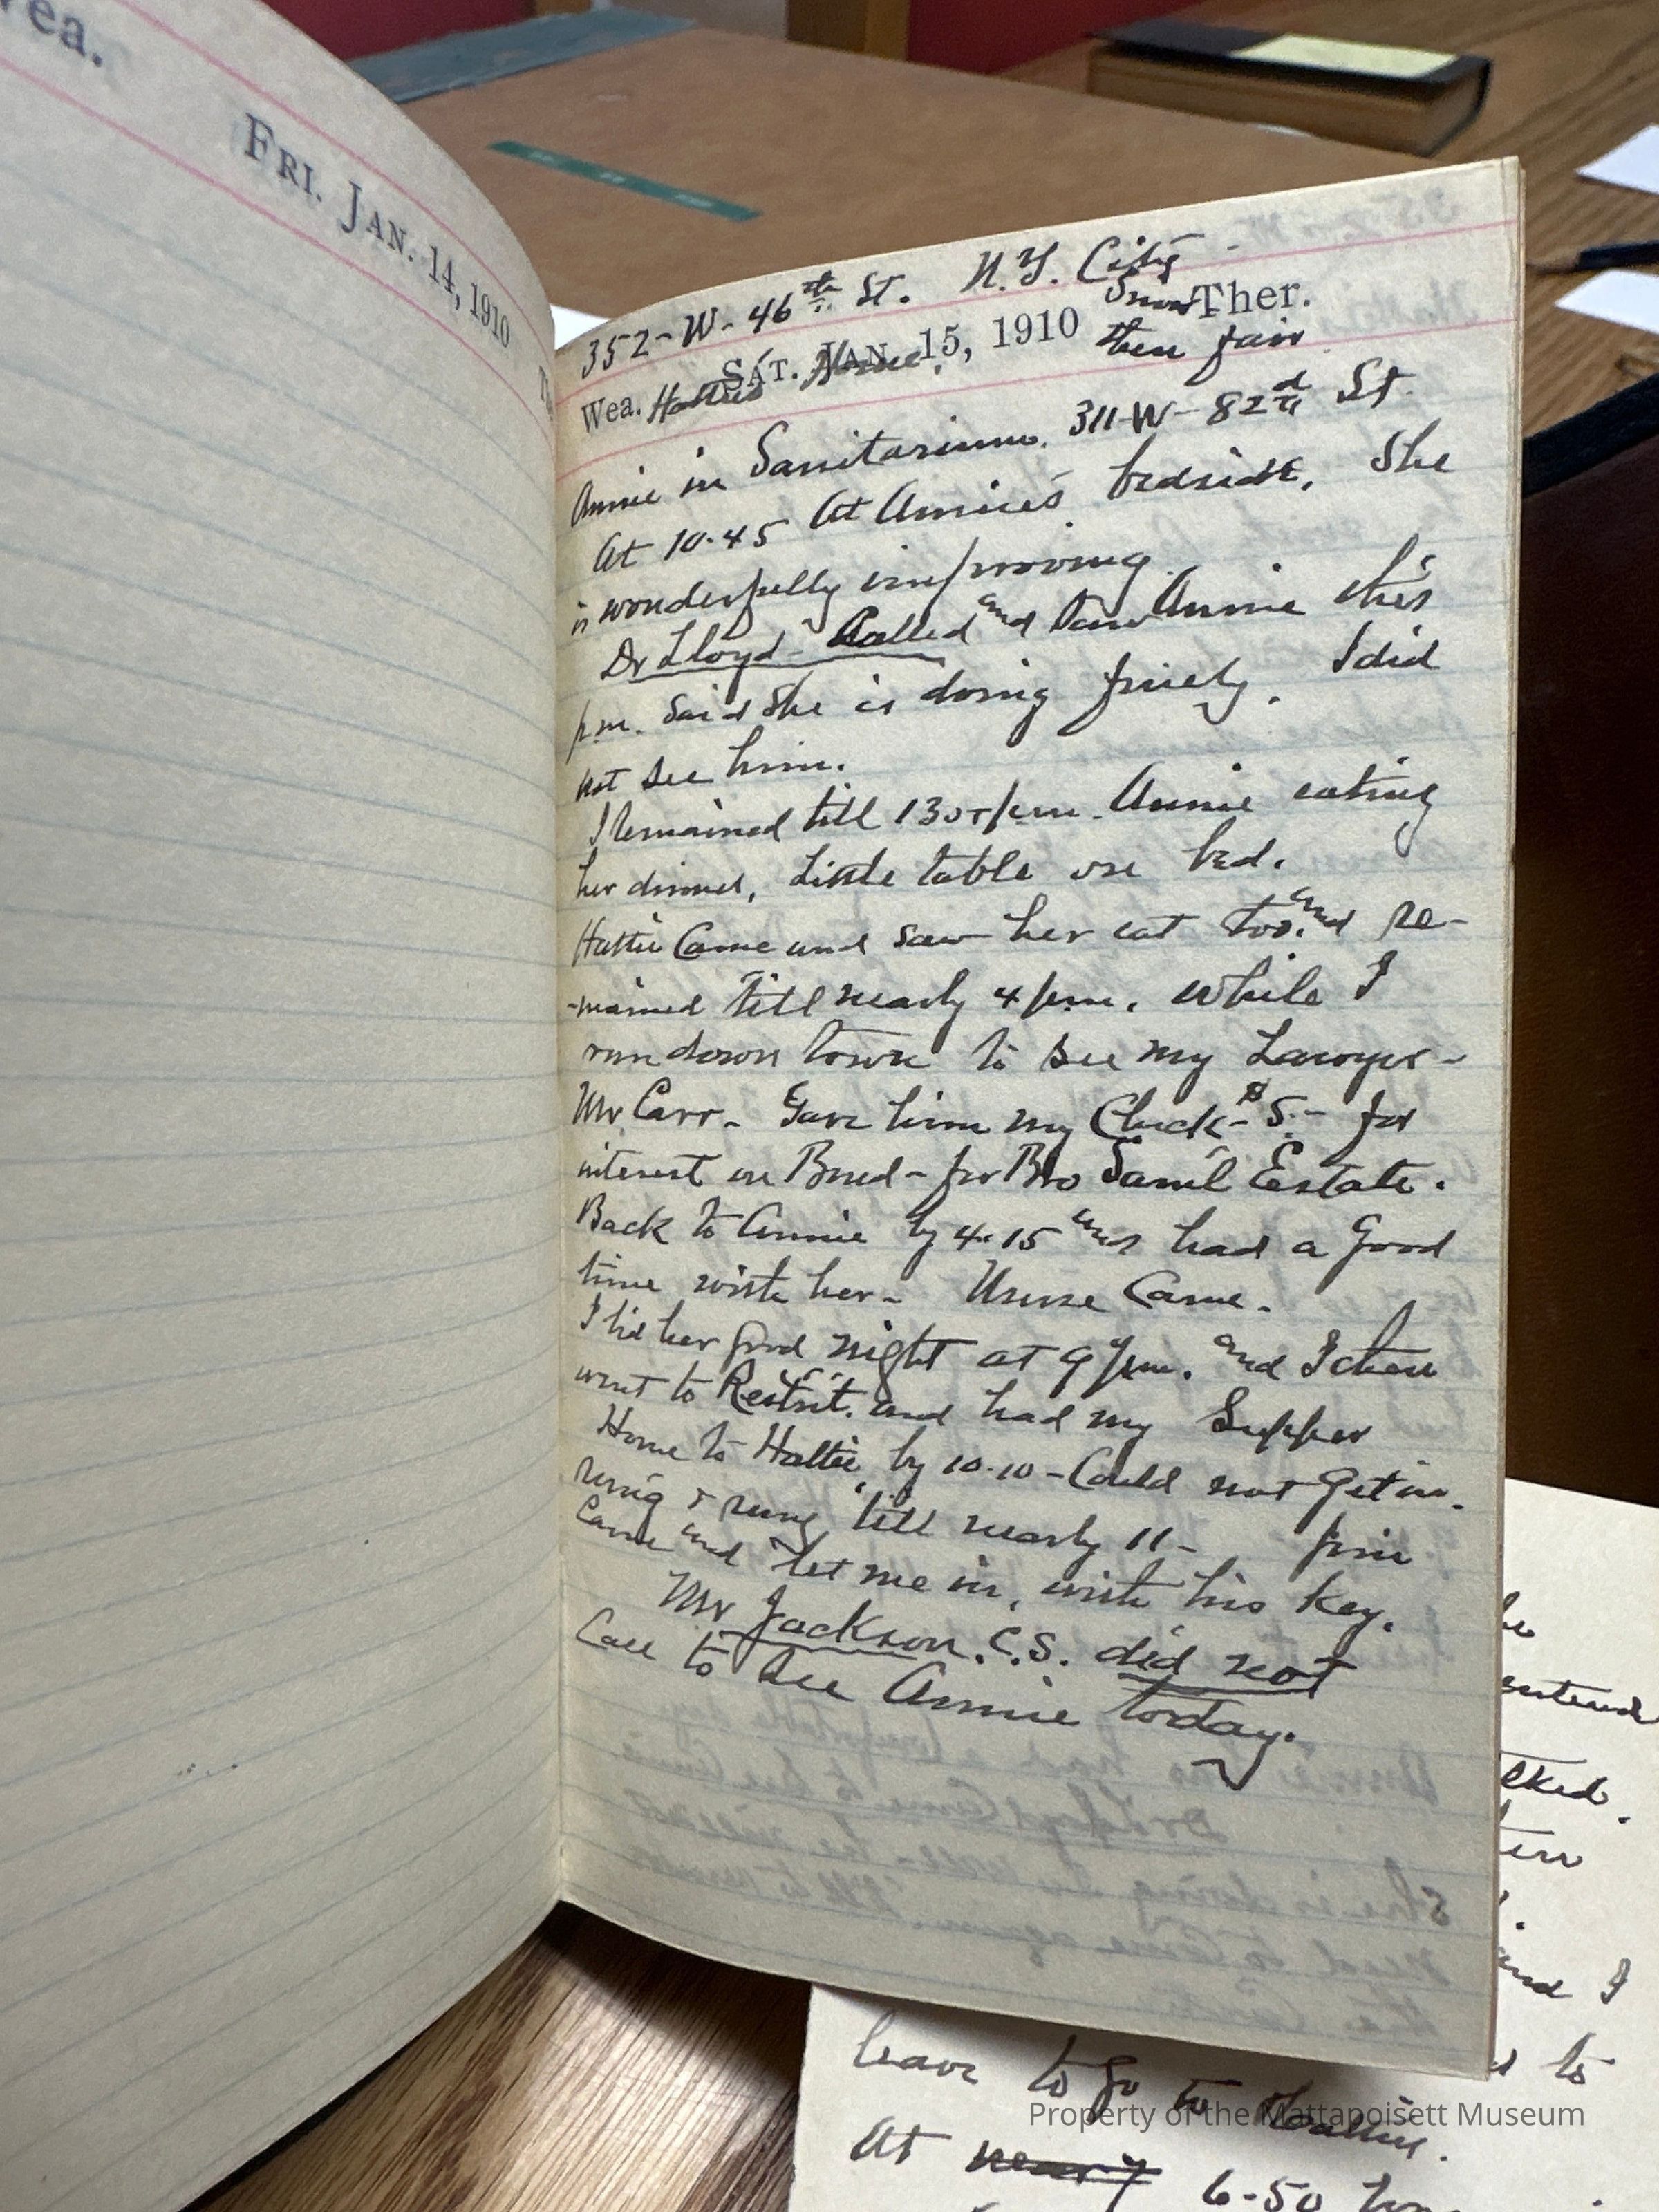 ea.
FRI. JAN. 14, 1910
352-W-46th St. N.Y. City
Snow Ther.
Wea. SAT. JAN. 15, 1910 then fair
Hatties Home.
Annie in Sanitarium. 311-W-82d St.
At 10.45 At Annie's bedside. She
is wonderfully improving.
Dr Lloyd - Called and saw Annie this
p.m. Said she is doing finely. I did
not see him.
I remained till 130 pm. Annie eating
her dinner, Little table on bed.
Hattie Came and saw her eat too. and re-
-mained till nearly 4 pm. while I
run down town to see my Lawyer-
Mr Carr- Gave him my Check- $5.- for
interest on Bond- for Bro Saml Estate.
Back to Annie by 4.15 and had a Good
time with her- Nurse Came.
I bid her good night at 9 pm. and I then
went to Restrt. and had my Supper
Home to Hattie, by 10.10 - Could not Get in.
rung & rung till nearly 11- Jim
Came and let me in, with his Key.
Mr Jackson. C.S. did not
Call to See Annie today.
lked.
and I
to
leave to go to
At 6-50
Property of the Mattapoisett Museum